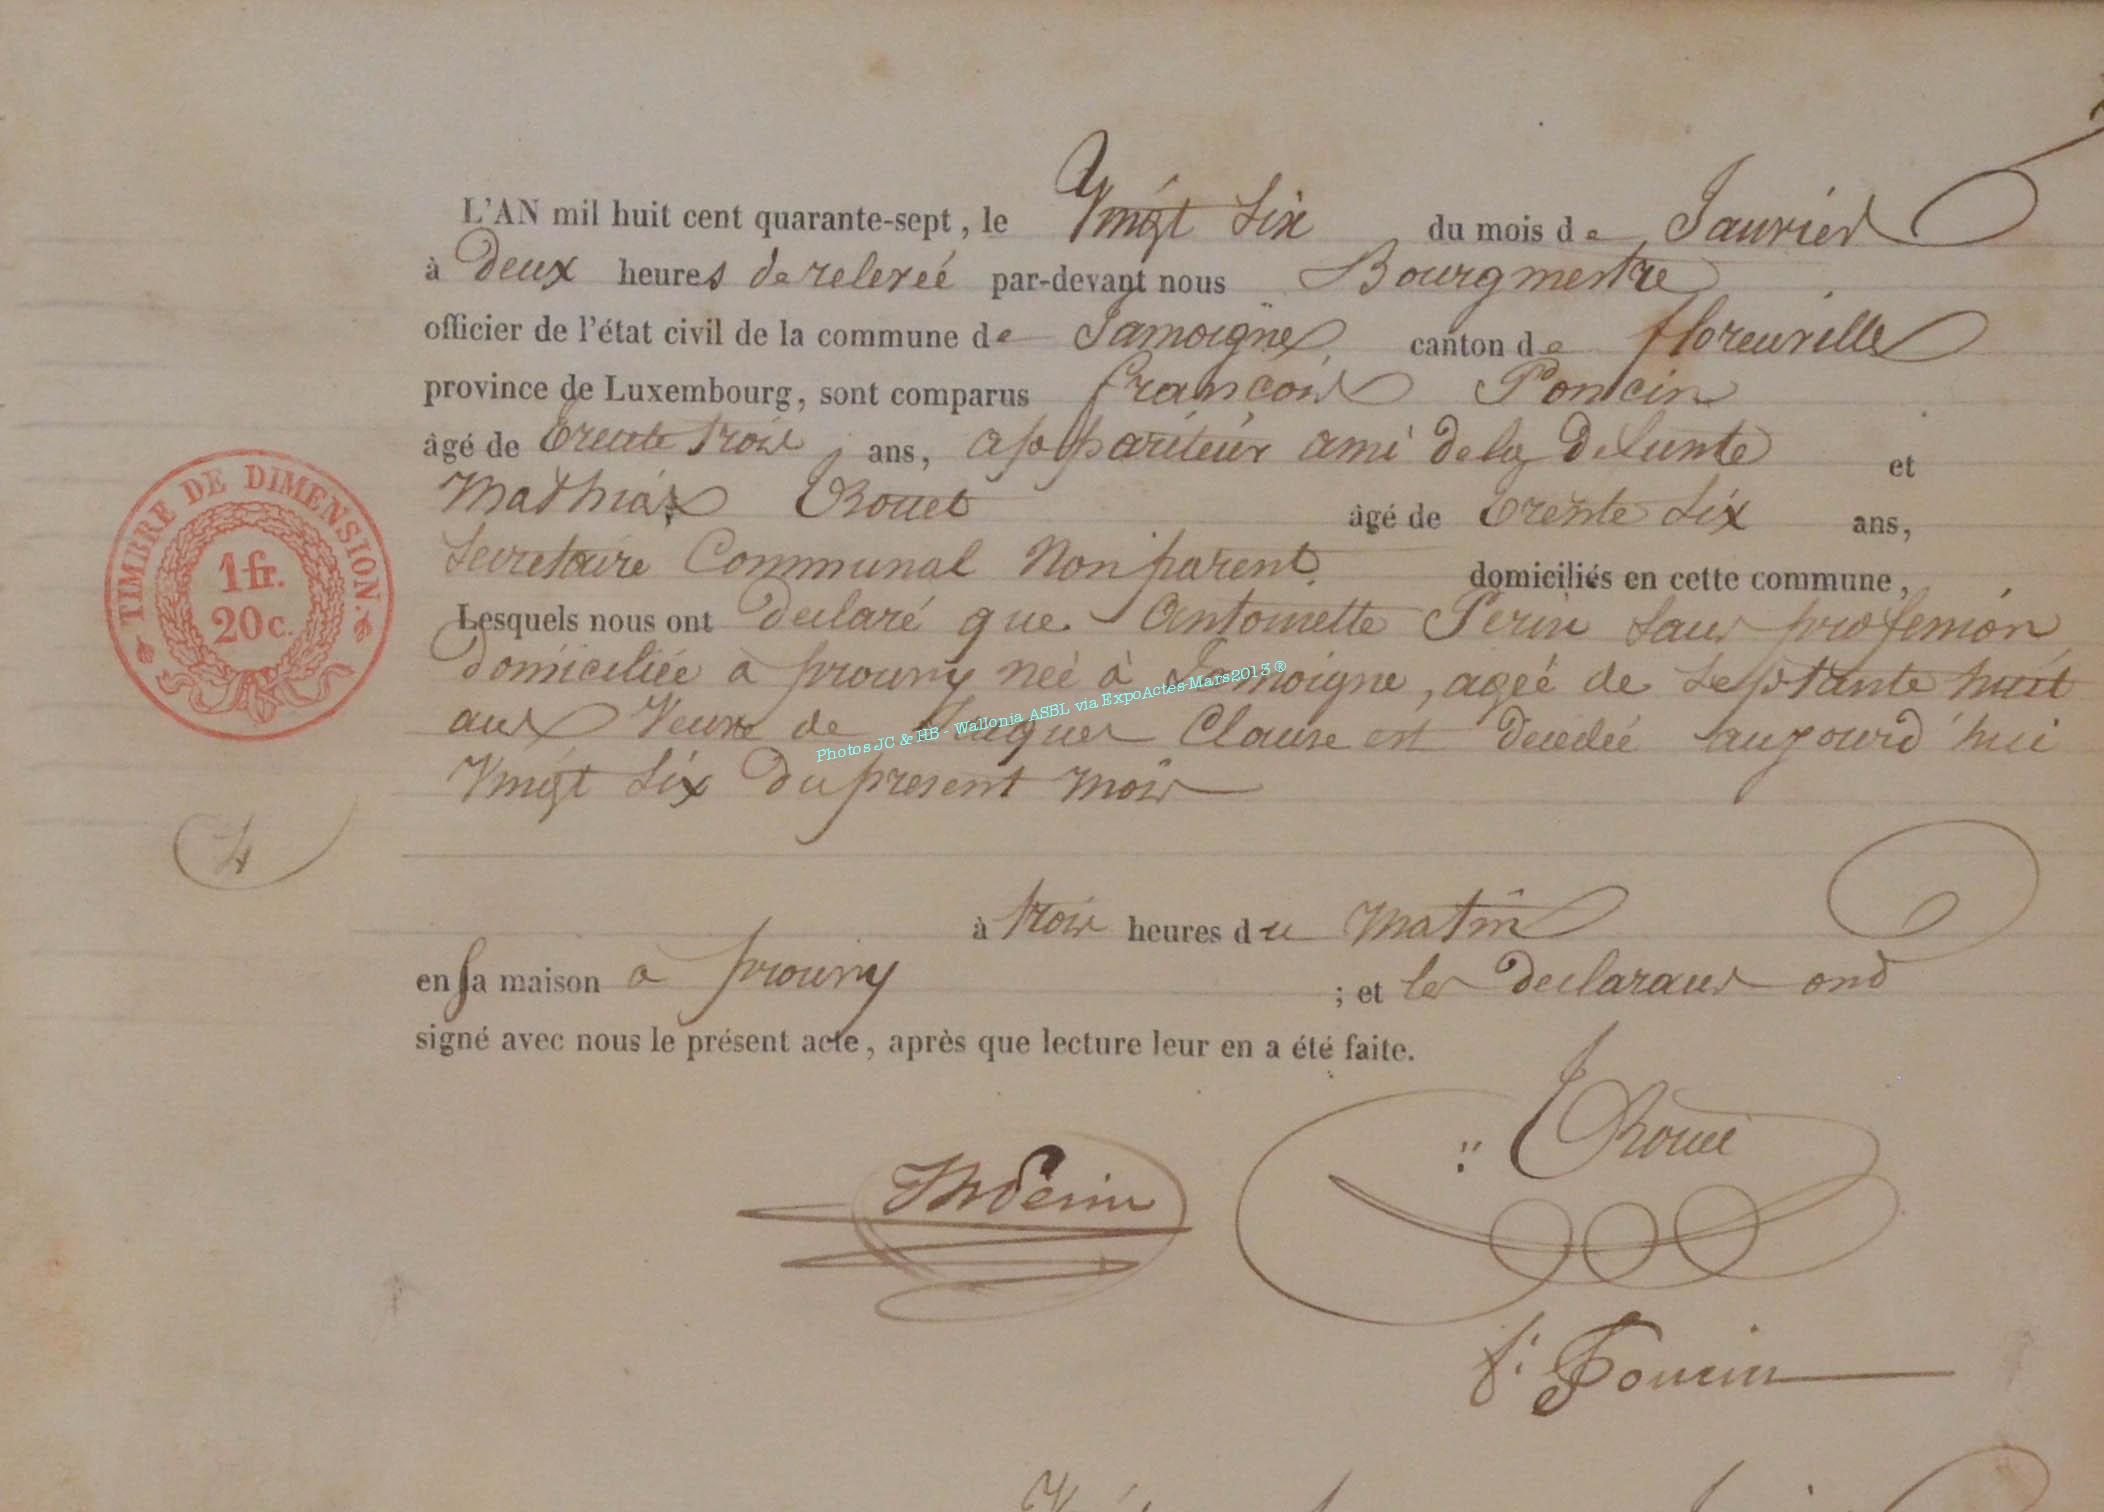 L'AN mil huit cent quarante-sept, le Vingt Six du mois de Janvier
à Deux heures de relevée par-devant nous Bourgmestre
officier de l'état civil de la commune de Jamoigne canton de florenville
province de Luxembourg, sont comparus francois Poncin
âgé de trente trois ans, appariteur ami de la defunte et
Mathias Rouet âgé de trente Six ans,
Secretaire Communal Non parent. domiciliés en cette commune,
Lesquels nous ont declaré que Antoinette Perin Sans profession
domiciliée à prouvy née à Jamoigne, agée de Septante huit
ans Veuve de Jaques Clause est decedée aujourd'hui
Vingt Six du present mois
à trois heures du Matin
en sa maison a prouvy ; et les declarans ont
signé avec nous le présent acte, après que lecture leur en a été faite.
TIMBRE DE DIMENSION.
1 fr.
20 c.
4
Photos JC & HB - Wallonia ASBL via ExpoActes-Mars2013 ®
Perin
Rouet
f. Poncin